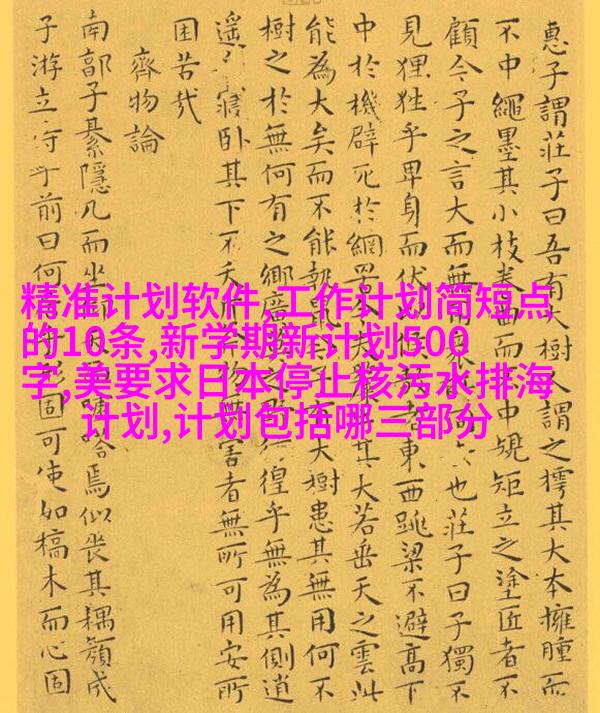 精准计划软件,工作计划简短点
的10条,新学期新计划500
字,美要求日本停止核污水排海
计划,计划包括哪三部分
惠子謂莊子曰吾有大樹人謂之樗其大本擁腫而
不中繩墨其小枝卷曲而不中規矩立之塗匠者不
顧今子之言大而無用也莊子曰子獨不
見狸狌乎卑身而伏者東西跳梁不避高下
中於機辟死於網罟其大若垂天之雲此
能為大矣而不能執鼠大樹患其無用何不
樹之於無何有之鄉廣徨乎無為其側逍
遙寢卧其下不夭物無害者無所可用安所
困苦哉
齊物論
南郭子綦隱几而坐焉似喪其耦顏成
子游立侍乎前曰何形固可使如槁木而心固